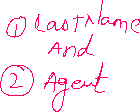 ① LastName
And
② Agent